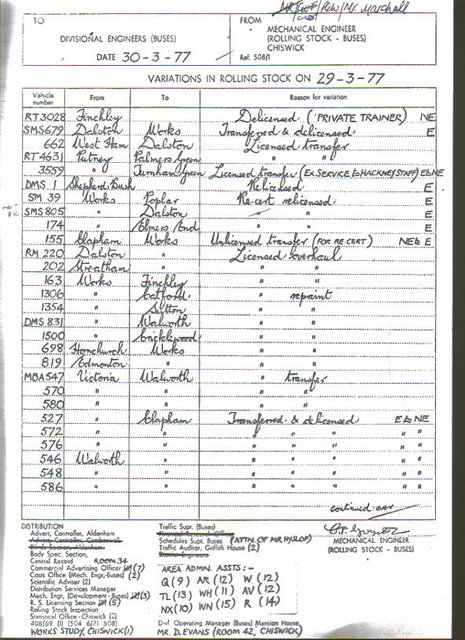 TO
DIVISIONAL ENGINEERS (BUSES)
DATE 30-3-77
FROM
MECHANICAL ENGINEER
(ROLLING STOCK - BUSES)
CHISWICK
Ref. 508/1
VARIATIONS IN ROLLING STOCK ON 29-3-77
Vehicle number From To Reason for variation
RT3028 Finchley Delicensed ('PRIVATE TRAINER) NE
SMS679 Dalston Works Transferred & delicensed. E
662 West Ham Dalston Licensed transfer
RT4631 Putney Palmers Green " "
3559 " Turnham Green Licensed transfer (EX SERVICE to HACKNEY STAFF) E to NE
DMS 1 Shepherds Bush Relicensed E
SM 39 Works Poplar Re-cert relicensed. E
SMS805 " Dalston " " E
174 " Elmers End " " E
155 Clapham Works Unlicensed transfer (FOR RE CERT) NE to E
RM 220 Dalston " Licensed overhaul
202 Streatham " " "
163 Works Finchley " "
1306 " Catford " repaint
1354 " Sutton " "
DMS831 " Walworth " "
1500 " Cricklewood " "
698 Hornchurch Works " "
819 Edmonton " " "
MBA547 Victoria Walworth " transfer
570 " " " "
580 " " " "
527 " Clapham Transferred & delicensed E to NE
572 " " " " " " "
576 " " " " " " "
546 Walworth " " " " " "
548 " " " " " " "
586 " " " " " " "
continued over
MECHANICAL ENGINEER
(ROLLING STOCK - BUSES)
DISTRIBUTION
Advert. Controller, Aldenham
Body Spec. Section,
Central Record ROOM 34
Commercial Advertising Officer (7)
Costs Office (Mech. Engr.-Buses) (2)
Scientific Adviser (2)
Distribution Services Manager
Mech. Engr. (Development - Buses) (3)
R. S. Licensing Section (5)
Rolling Stock Inspection
Statistical Office - Chiswick (2)
408/69 (1) 504 6/71 508
WORKS STUDY, CHISWICK (1)
Traffic Supt. (Buses)
Schedules Supt. Buses (ATTN. OF MR HYSLOP)
Traffic Auditor, Griffith House (2)
AREA ADMIN. ASSTS :-
Q (9) AR (12) W (12)
TL (13) WH (11) AV (12)
NX (10) WN (15) R (14)
Divl Operating Manager (Buses) Mansion House,
MR. D. EVANS (ROOM 42, CHISWICK)